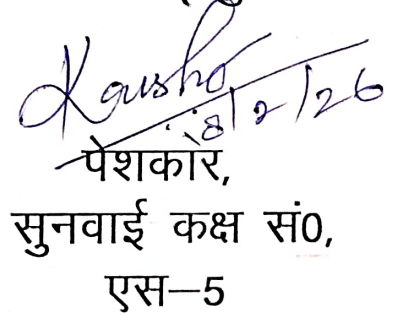 18/2/26
पेशकार,
सुनवाई कक्ष सं0,
एस–5